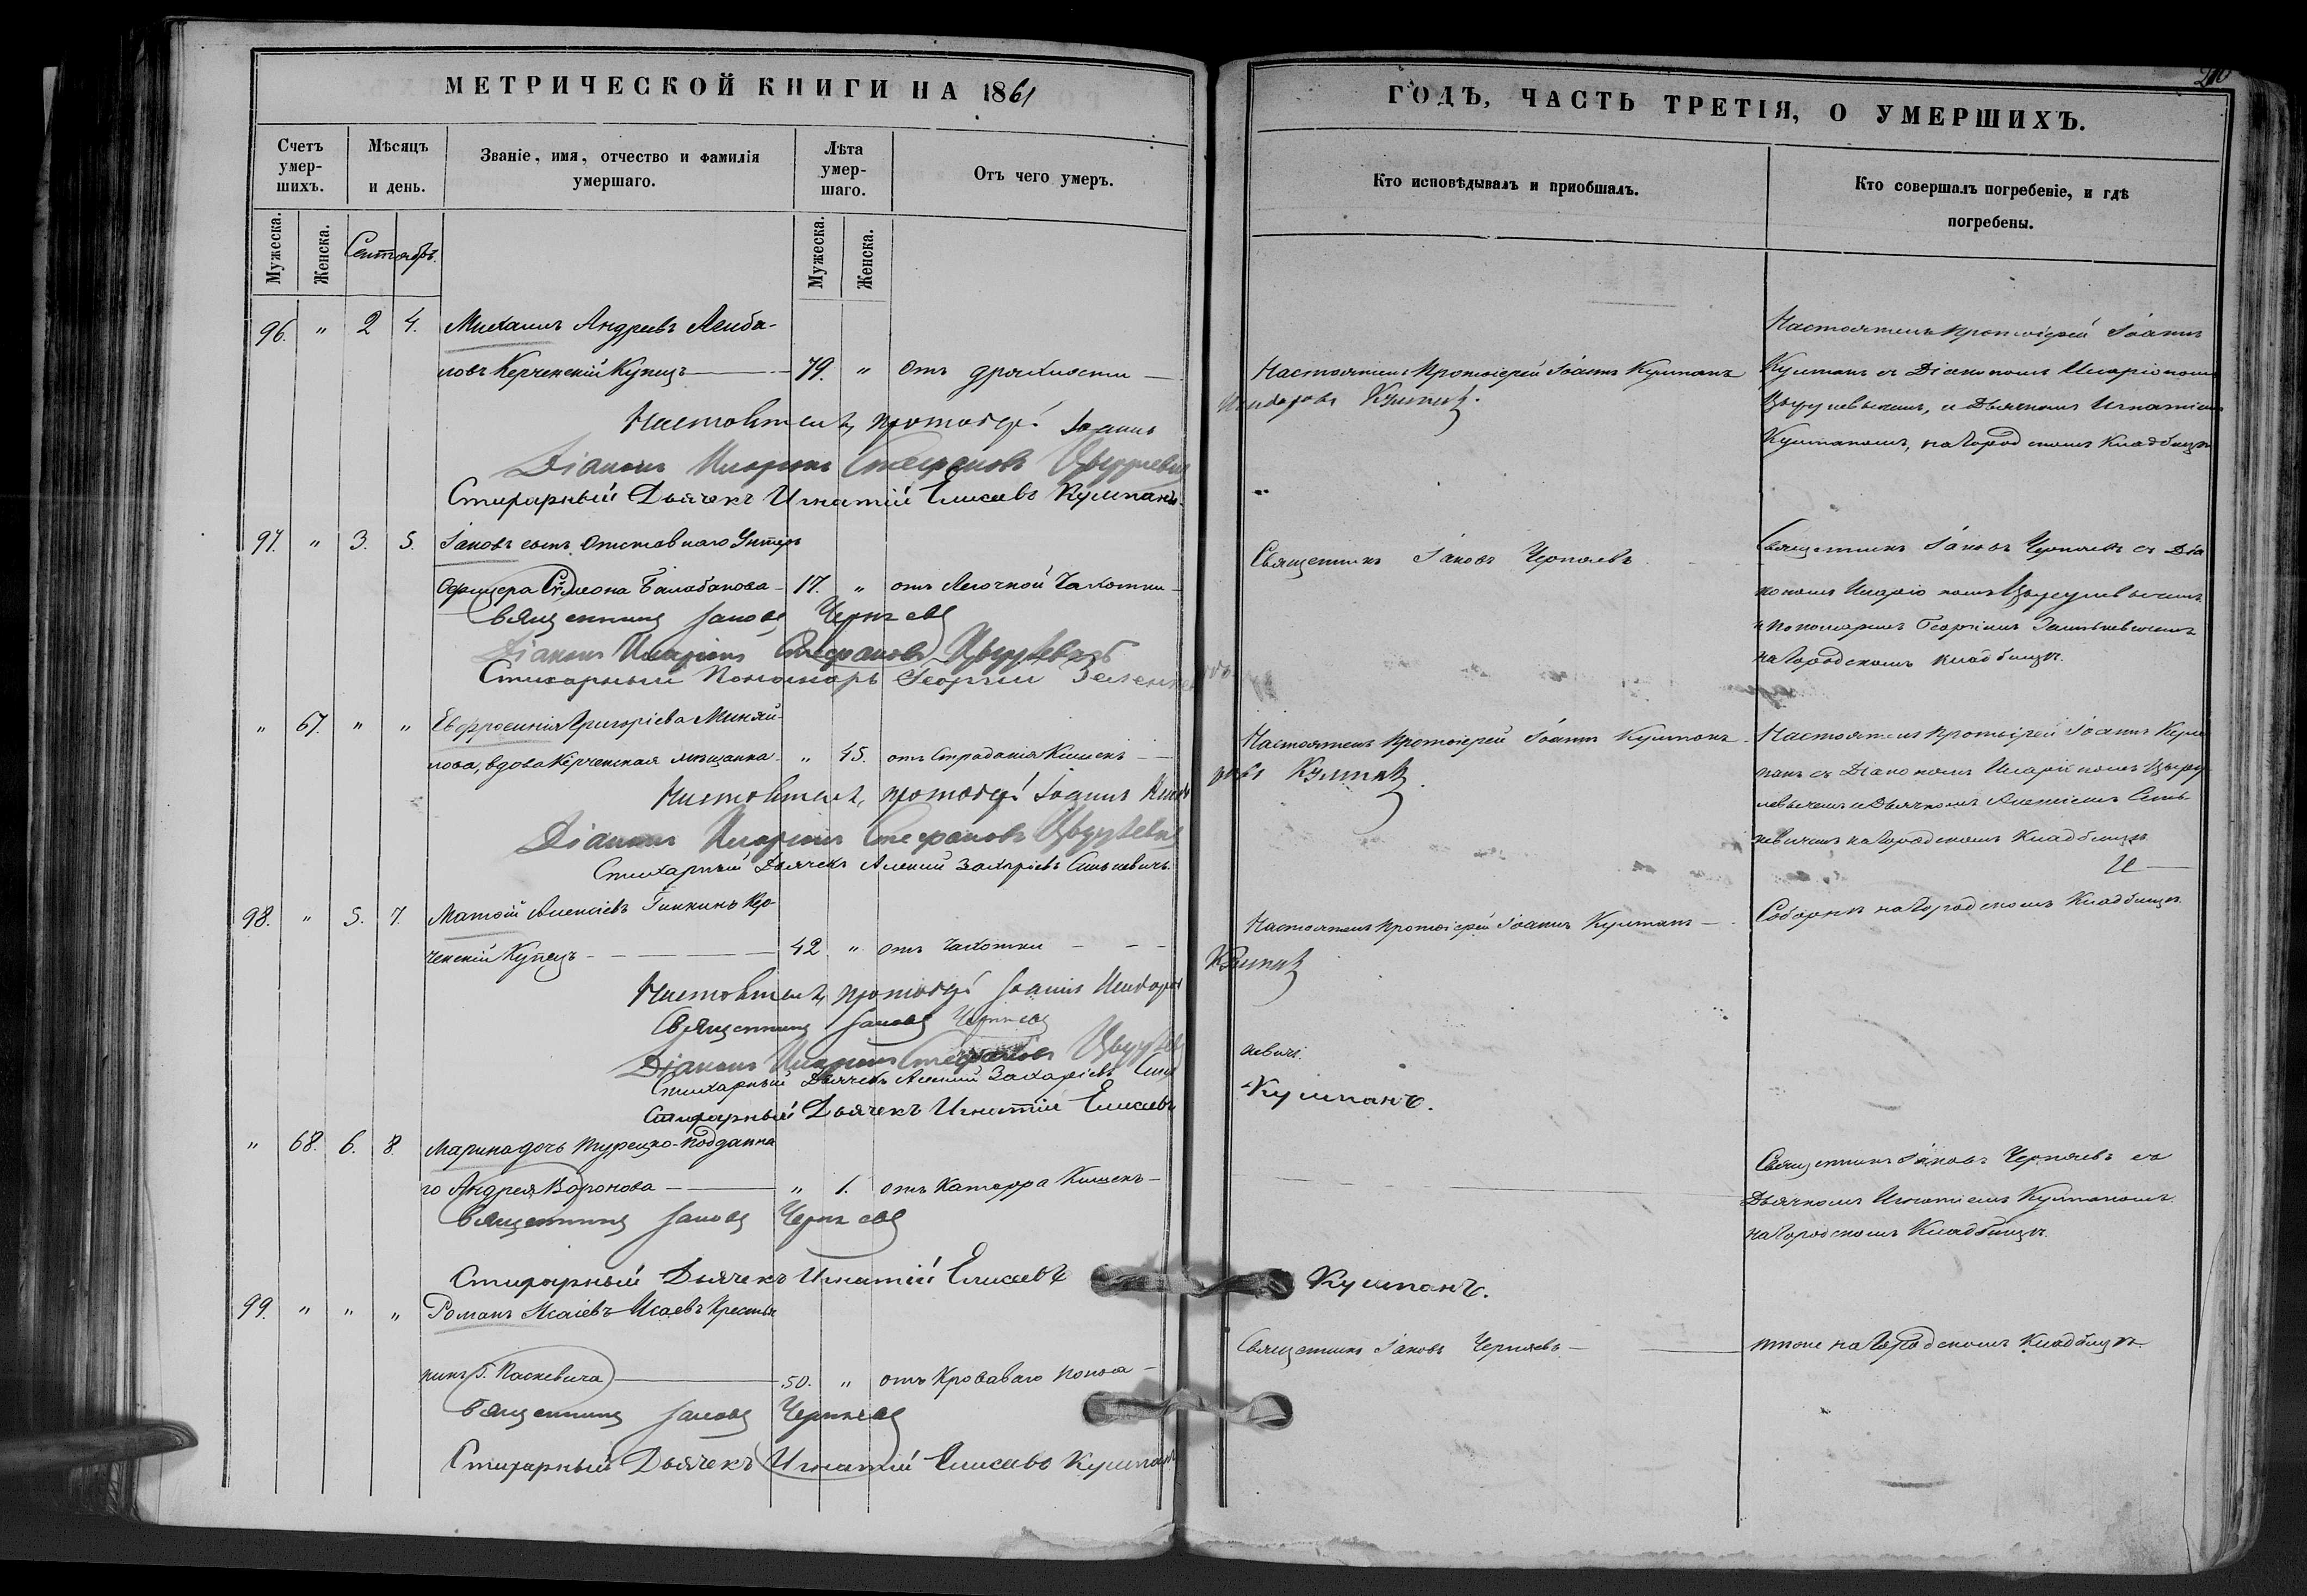 МЕТРИЧЕСКОЙ КНИГИ НА 1861
Счетъ умер-шихъ.
Мѣсяцъ и день.
Званіе, имя, отчество и фамилія умершаго.
Лѣта умер-шаго.
Отъ чего умеръ.
Мужеска.
Женска.
Сентябрь.
Мужеска.
Женска.
96. " 2 4. Михаилъ Андреевъ
ловъ Керченскій Купецъ 79. " отъ дряхлости
Настоятель, протоіерей Іоаннъ
Діаконъ Иларіонъ Стефановъ
Стихарный Дьячекъ Игнатій Елисеевъ Кушпанъ.
97. " 3. 5. Іаковъ сынъ Отставнаго Унтеръ
Офицера Сѵмеона Балабанова 17. " отъ Легочной Чахотки
Священникъ Іаковъ Черняевъ
Діаконъ Иларіонъ Стефановъ
Стихарный Пономарь Георгій
" 67. " " Евфросинія Григоріева Миняй-
лова, вдова Керченская мѣщанка " 45. отъ Страданія Кишекъ
Настоятель, протоіерей Іоаннъ
Діаконъ Иларіонъ Стефановъ
Стихарный Дьячекъ Алексій Захаріевъ Синькевичъ.
98. " 5. 7. Матѳій Алексіевъ Кер-
ченскій Купецъ 42 " отъ чахотки
Настоятель, протоіерей Іоаннъ
Священникъ Іаковъ Черняевъ
Діаконъ Иларіонъ Стефановъ
Стихарный Дьячекъ Алексій Захаріевъ
Стихарный Дьячекъ Игнатій Елисеевъ
" 68. 6. 8. Марина дочь Турецко-подданна
го Андрея Воронова " 1. отъ Катарра Кишекъ
Священникъ Іаковъ Черняевъ
Стихарный Дьячекъ Игнатій Елисеевъ
99. " " " Романъ Исаіевъ Исаевъ Крестья
нинъ Г. Паскевича 50. " отъ Кроваваго поноса
Священникъ Іаковъ Черняевъ
Стихарный Дьячекъ Игнатій Елисеевъ Кушпанъ
ГОДЪ, ЧАСТЬ ТРЕТІЯ, О УМЕРШИХЪ.
Кто исповѣдывалъ и приобщалъ.
Кто совершалъ погребеніе, и гдѣ погребены.
Настоятель Протоіерей Іоаннъ Кушпанъ
Настоятель Протоіерей Іоаннъ
Кушпанъ съ Діакономъ Иларіономъ
и Дьячкомъ Игнатіемъ
Кушпаномъ, на Городскомъ Кладбищѣ
Священникъ Іаковъ Черняевъ
Священникъ Іаковъ Черняевъ съ Діа
кономъ Иларіономъ
и Пономаремъ Георгіемъ
на Городскомъ Кладбищѣ.
Настоятель Протоіерей Іоаннъ Кушпанъ
Настоятель Протоіерей Іоаннъ Куш
панъ съ Діакономъ Иларіономъ
и Дьячкомъ Алексіемъ Синь-
кевичемъ на Городскомъ Кладбищѣ
Настоятель Протоіерей Іоаннъ Кушпанъ
Соборнѣ на Городскомъ Кладбищѣ.
кевичъ.
Кушпанъ.
Священникъ Іаковъ Черняевъ съ
Дьячкомъ Игнатіемъ Кушпаномъ
на Городскомъ Кладбищѣ.
Кушпанъ.
Священникъ Іаковъ Черняевъ
тоже на Городскомъ Кладбищѣ